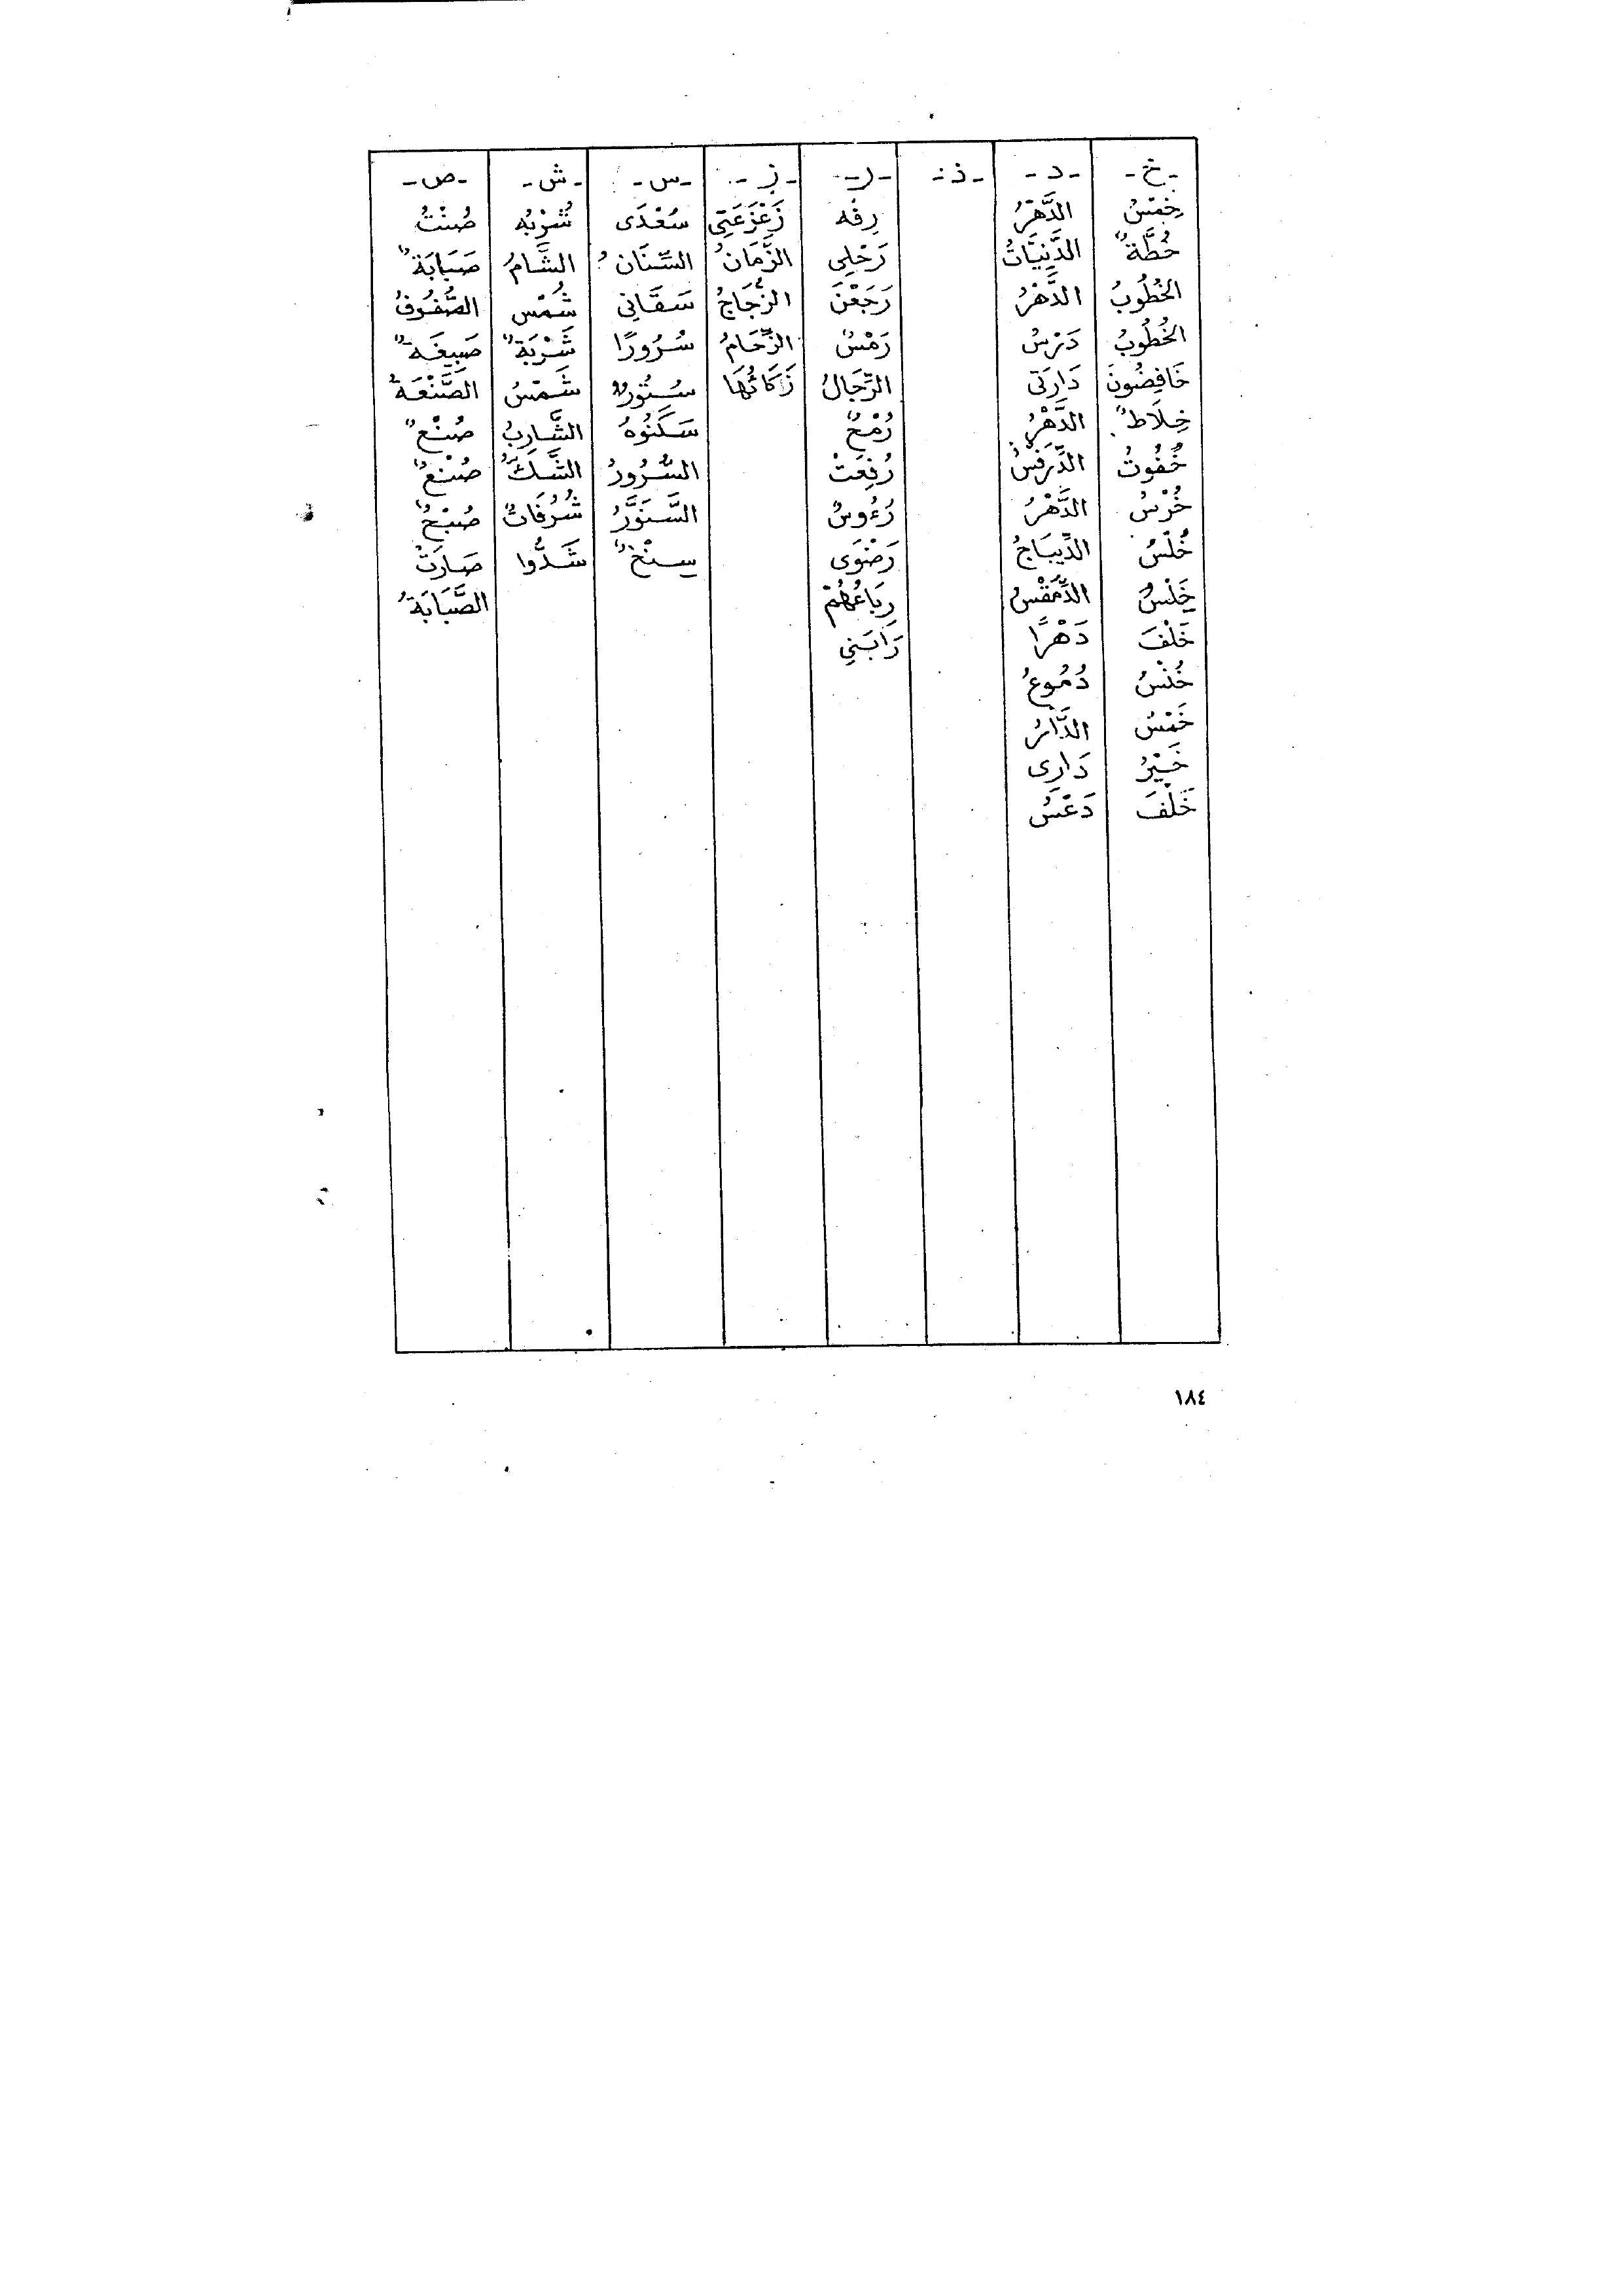 -خ- -د- -ذ- -ر- -ز- -س- -ش- -ص-
خِمْسُ الدَّهْرُ رِفْه زَعْزَعَتْنِي سُعْدَى شُرْبُه صُنْتُ
خُطَّةٌ الدَّنِيَّاتُ رَحْلِي الزَّمَانُ السِّنَانُ الشَّامُ صَبَابَةٌ
الخُطُوبُ الدَّهْرُ رَجَعْنَ الزُّجَاجُ سَقَانِي شُمْس الصُّفُوفُ
الخُطُوبُ دَرْسُ رَمْسُ الزِّحَامُ سُرُورًا شَرْبَةٌ صَبِيغَةٌ
خَافِضُونَ دَارَتَى الرِّجَالُ زَكَاتُهَا سُتُورٌ شَمْسُ الصَّنْعَةُ
خِلَاطٌ الدَّهْرُ رُمْحٌ سَكَنُوهُ الشَّارِبُ صُنْعٌ
خُفُوتُ الدِّرَفْسُ رُفِعَتْ السُّرُورُ الشَّكُّ صُنْعٌ
خُرْسُ الدَّهْرُ رُءُوسٌ السَّنَوَّرُ شُرُفَاتٌ صُبْحٌ
خُلْسُ الدِّيبَاجُ رَضْوَى سِنْخٌ شَدُّوا صَارَتْ
خَلْسُ الدِّمَقْسُ رِبَاعُهُمْ الصَّبَابَةُ
خَلْفَ دَهْرًا رَابَنِي
خُنْسُ دُمُوعُ
خَمْسُ الدَّارُ
خَيْرُ دَارِى
خَلْفَ دَعْسُ
١٨٤